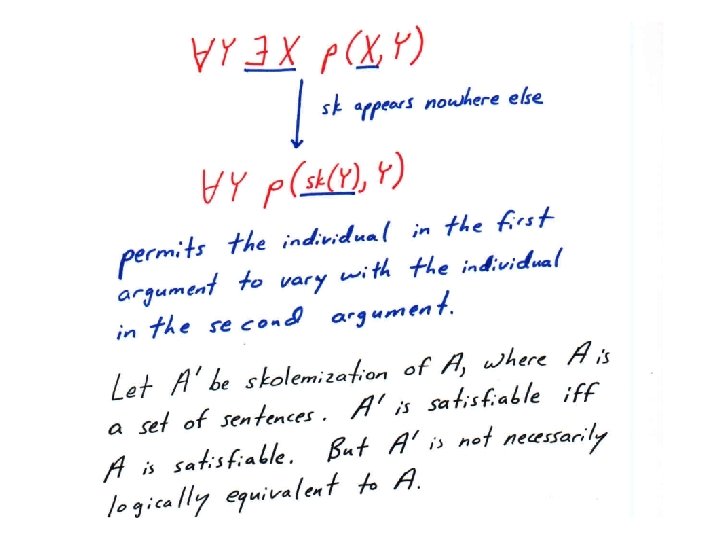 ∀Y ∃X p(X, Y)
sk appears nowhere else
∀Y p(sk(Y), Y)
permits the individual in the first
argument to vary with the individual
in the second argument.
Let A' be skolemization of A, where A is
a set of sentences. A' is satisfiable iff
A is satisfiable. But A' is not necessarily
logically equivalent to A.